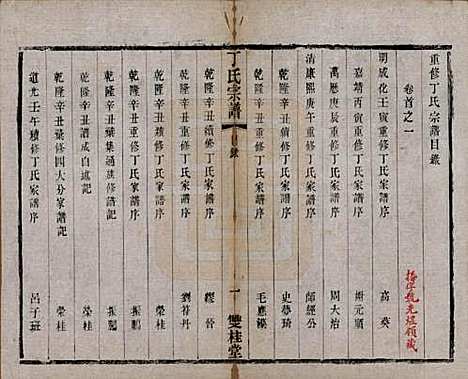 重修丁氏宗譜目錄
卷首之一
明成化壬寅重修丁氏家譜序 高英
嘉靖丙寅重修丁氏家譜序 謝元順
萬曆庚辰重修丁氏家譜序 周大治
清康熙庚午重修丁氏家譜序 師經公
乾隆辛丑重修丁氏家譜序 史夢琦
乾隆辛丑重修丁氏家譜序 毛應藻
丁氏宗譜 目錄 一 雙桂堂
乾隆辛丑續修丁氏家譜序 繆晉
乾隆辛丑重修丁氏家譜序 劉符丹
乾隆辛丑重修丁氏家譜序 榮桂
乾隆辛丑葉集通族修譜記 振
乾隆辛丑譜成自述記 振
乾隆辛丑葉修四大分家譜記 榮桂
道光壬午續修丁氏家譜序 呂子班